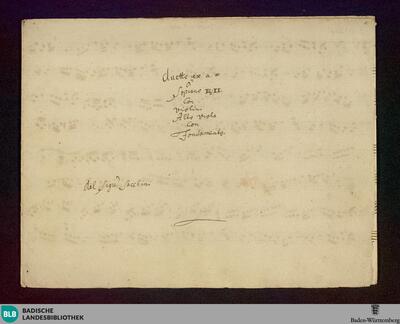 Duetto ex a #
a
Soprano I. II.
Con
Violini
Alto Viola
Con
Fondamento.
del Sigre Sacchini
BLB
BADISCHE
LANDESBIBLIOTHEK
Baden-Württemberg